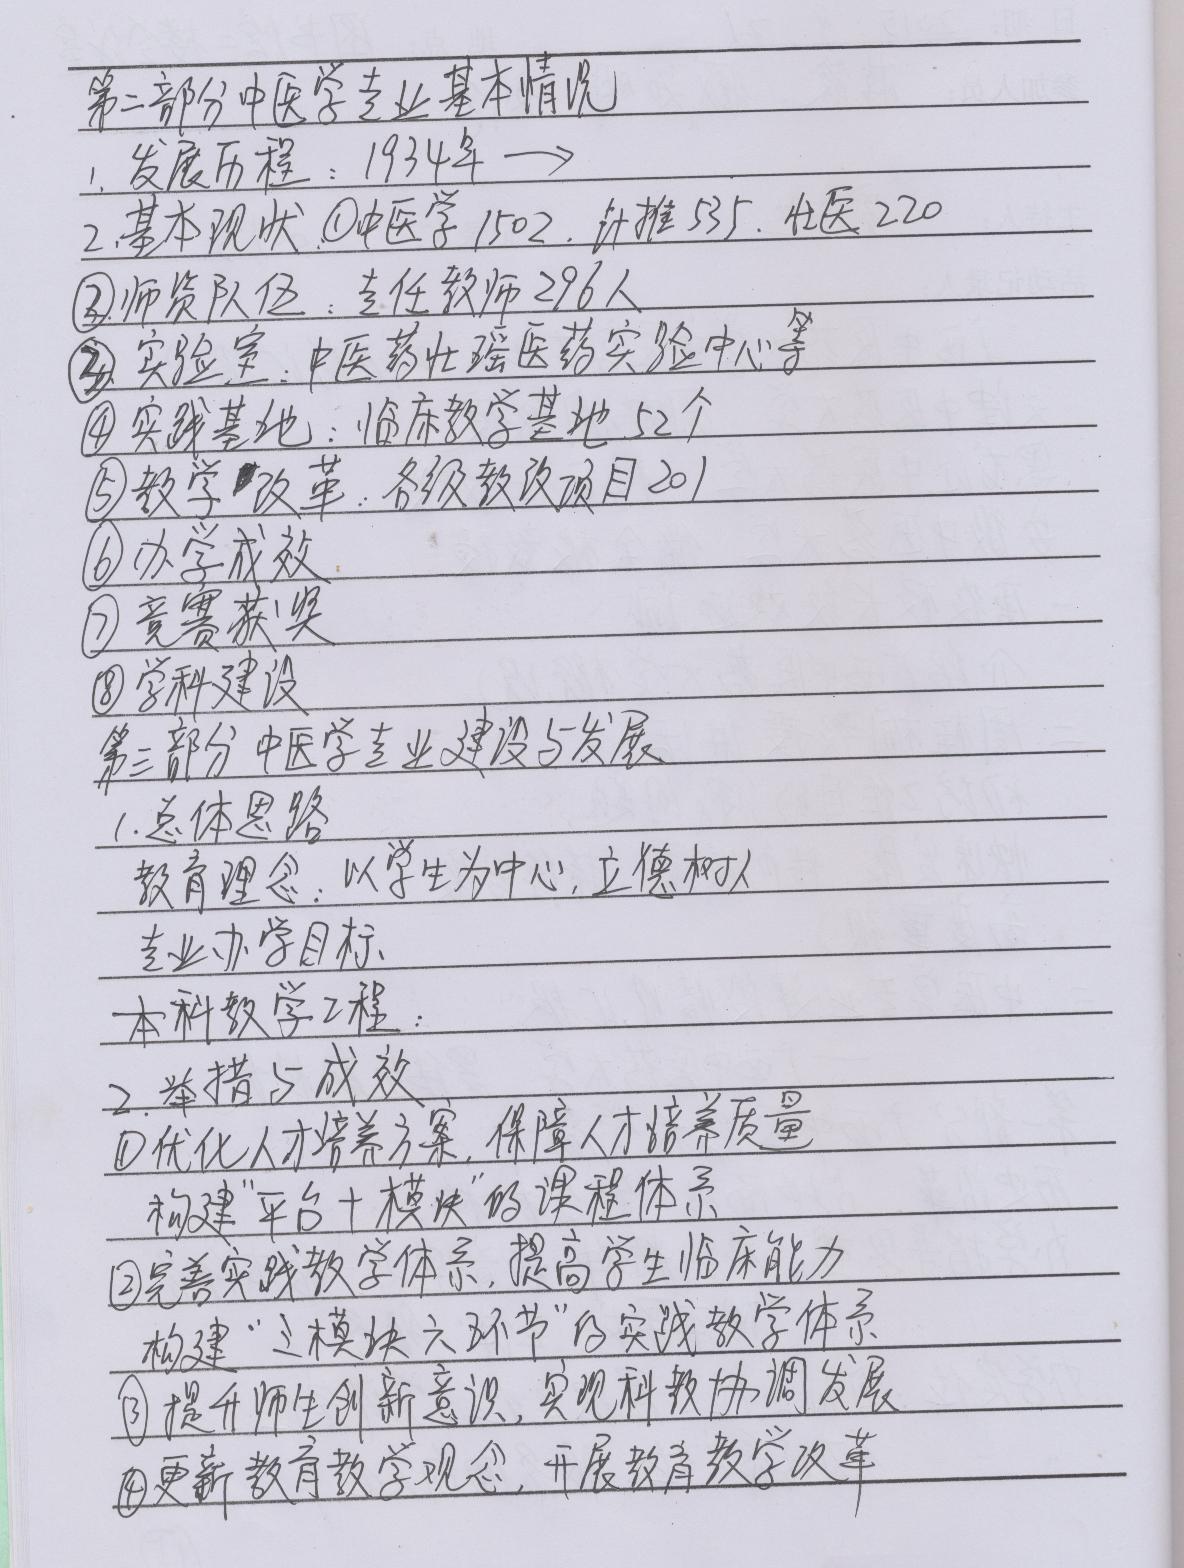 第二部分中医学专业基本情况
1. 发展历程：1934年 →
2. 基本现状 ①中医学1502. 针推535. 壮医220
②师资队伍：专任教师296人
③ 实验室：中医药壮瑶医药实验中心等
④ 实践基地：临床教学基地52个
⑤ 教学改革：各级教改项目201
⑥ 办学成效
⑦ 竞赛获奖
⑧ 学科建设
第三部分中医学专业建设与发展
1. 总体思路
教育理念：以学生为中心，立德树人
专业办学目标
本科教学工程：
2. 举措与成效
① 优化人才培养方案，保障人才培养质量
构建"平台+模块"的课程体系
② 完善实践教学体系，提高学生临床能力
构建"三模块六环节"的实践教学体系
③ 提升师生创新意识，实现科教协调发展
④ 更新教育教学观念，开展教育教学改革